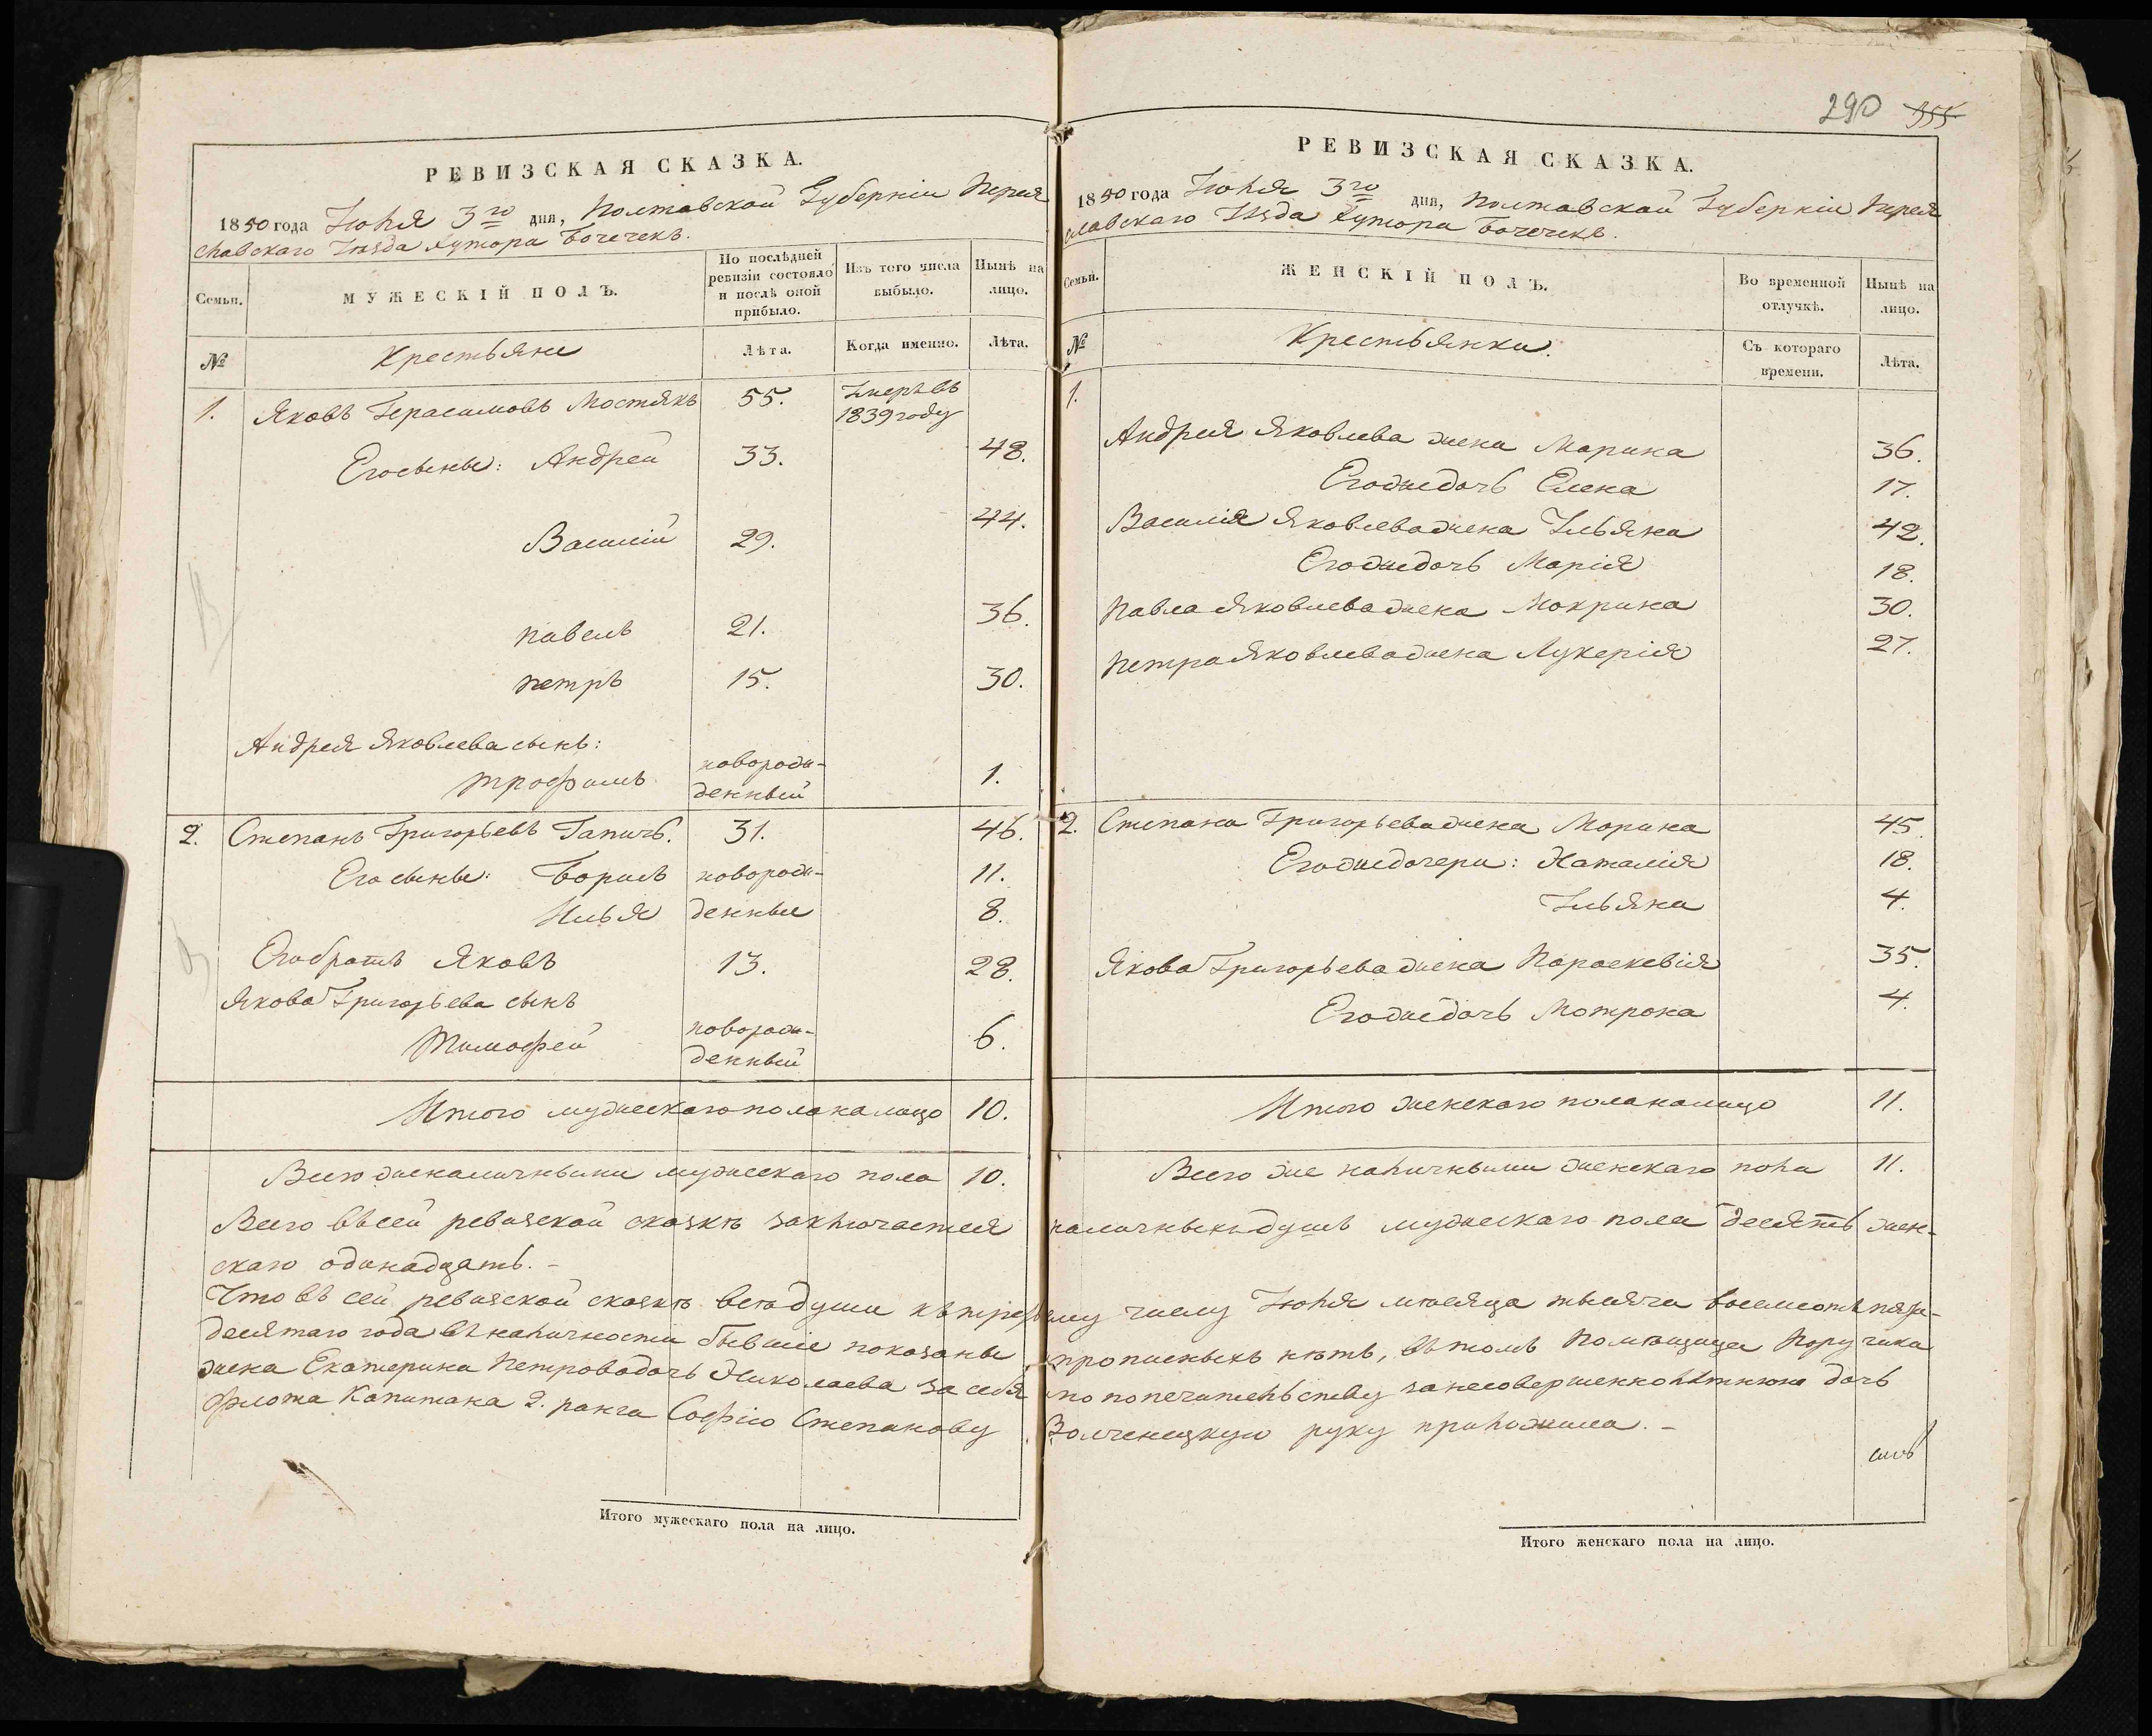 290 355
РЕВИЗСКАЯ СКАЗКА.
1850 года Іюня 3го дня, Полтавской Губерніи Перея
славскаго Уѣзда Хутора Бочечекъ.
Семьи.
МУЖЕСКІЙ ПОЛЪ.
По послѣдней
ревизіи состояло
и послѣ оной
прибыло.
Изъ того числа
выбыло.
Нынѣ на
лицо.
№
Крестьяне
Лѣта.
Когда именно.
Лѣта.
1. Яковъ Герасимовъ Мостякъ 55. Умеръ въ
1839 году
Его сыны: Андрей 33. 48.
Василій 29. 44.
Павелъ 21. 36.
Петръ 15. 30.
Андрея Яковлева сынъ:
Трофимъ новорож-
денный 1.
2. Степанъ Григорьевъ Гапичъ. 31. 46.
Его сыны: Борисъ новорож- 11.
Илья денные 8.
Его братъ Яковъ 13. 28.
Якова Григорьева сынъ
Тимофей новорож-
денный 6.
Итого мужескаго пола на лицо 10.
Всего же наличными мужескаго пола 10.
РЕВИЗСКАЯ СКАЗКА.
1850 года Іюня 3го дня, Полтавской Губерніи Перея
славскаго Уѣзда Хутора Бочечекъ.
Семьи.
ЖЕНСКІЙ ПОЛЪ.
Во временной
отлучкѣ.
Нынѣ на
лицо.
№
Крестьянки.
Съ котораго
времени.
Лѣта.
1.
Андрея Яковлева жена Марина 36.
Его же дочь Елена 17.
Василія Яковлева жена Ульяна 42.
Его же дочь Марія 18.
Павла Яковлева жена Мокрина 30.
Петра Яковлева жена Лукерія 27.
2. Степана Григорьева жена Марина 45
Его же дочери: Наталія 18.
Ульяна 4.
Якова Григорьева жена Параскевія 35.
Его же дочь Мотрона 4.
Итого женскаго пола на лицо 11.
Всего же наличными женскаго пола 11.
Всего въ сей ревизской сказкѣ заключается наличныхъ душъ мужескаго пола десять жен-
скаго одинадцать.-
Что въ сей ревизской сказкѣ всѣ души къ третьему числу Іюня мѣсяца тысяча восемсотъ пяти-
десятаго года въ наличности бывшіе показаны прописныхъ нѣтъ, въ томъ Помѣщица Поручика
жена Екатерина Петрова дочь Николаева за себя и по попечительству за несовершеннолѣтнюю дочь
флота Капитана 2. ранга Софію Степанову Волченецкую руку приложила.-
Итого мужескаго пола на лицо.
Итого женскаго пола на лицо.